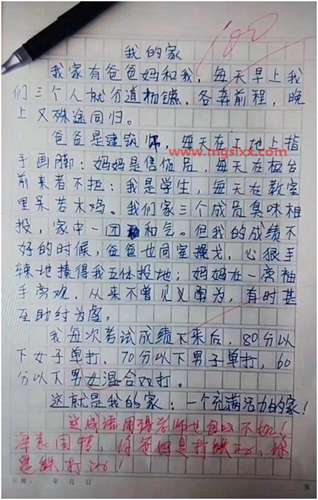 100
我的家
我家有爸爸妈和我，每天早上我
们三个人就分道扬镳，各奔前程，晚
上又殊途同归。
爸爸是建筑师，每天在工地上指
手画脚；妈妈是售货员，每天在柜台
www.mgsixx.com
前来者不拒；我是学生，每天在教室
里呆若木鸡。我们家三个成员臭味相
投，家中一团和气。但我的成绩不
好的时候，爸爸也同室操戈，心狠手
辣地揍得我五体投地；妈妈在一旁袖
手旁观，从来不曾见义勇为，有时甚
至助纣为虐。
我每次考试成绩下来后，80分以
下女子单打，70分以下男子单打，60
分以下男女混合双打。
这就是我的家：一个充满活力的家！